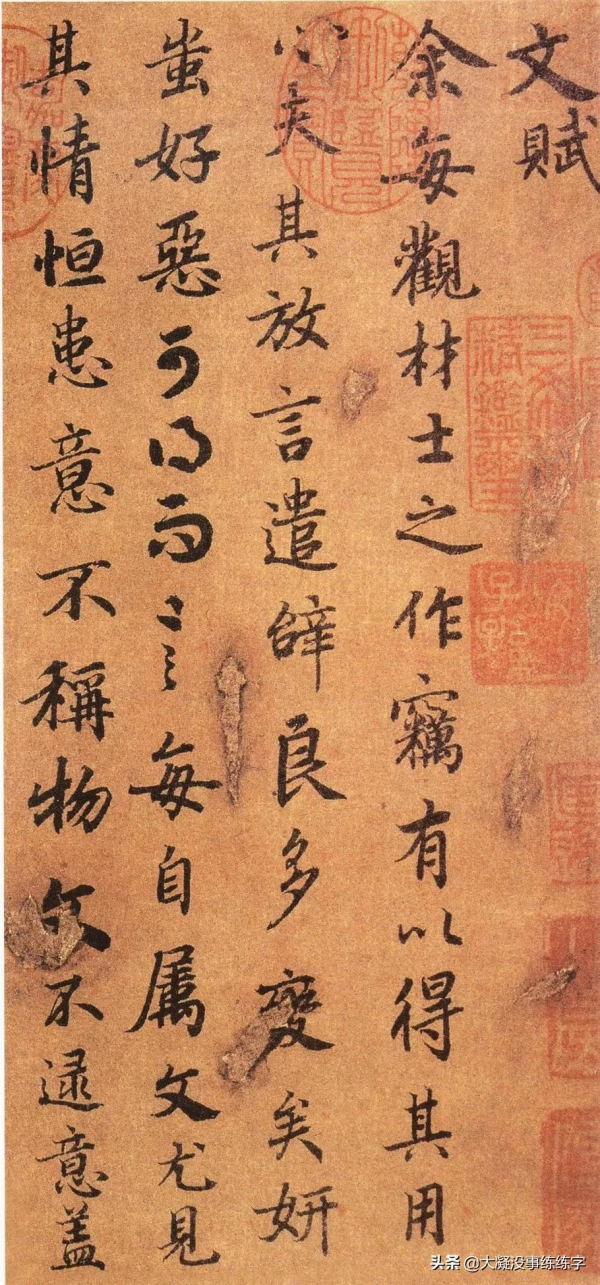 文賦
余每觀材士之作竊有以得其用
心夫其放言遣辭良多變矣妍
蚩好惡可得而言每自屬文尤見
其情恒患意不稱物文不逮意蓋
三希堂精鑑璽
宜子孫
头条 @大凝没事练练字